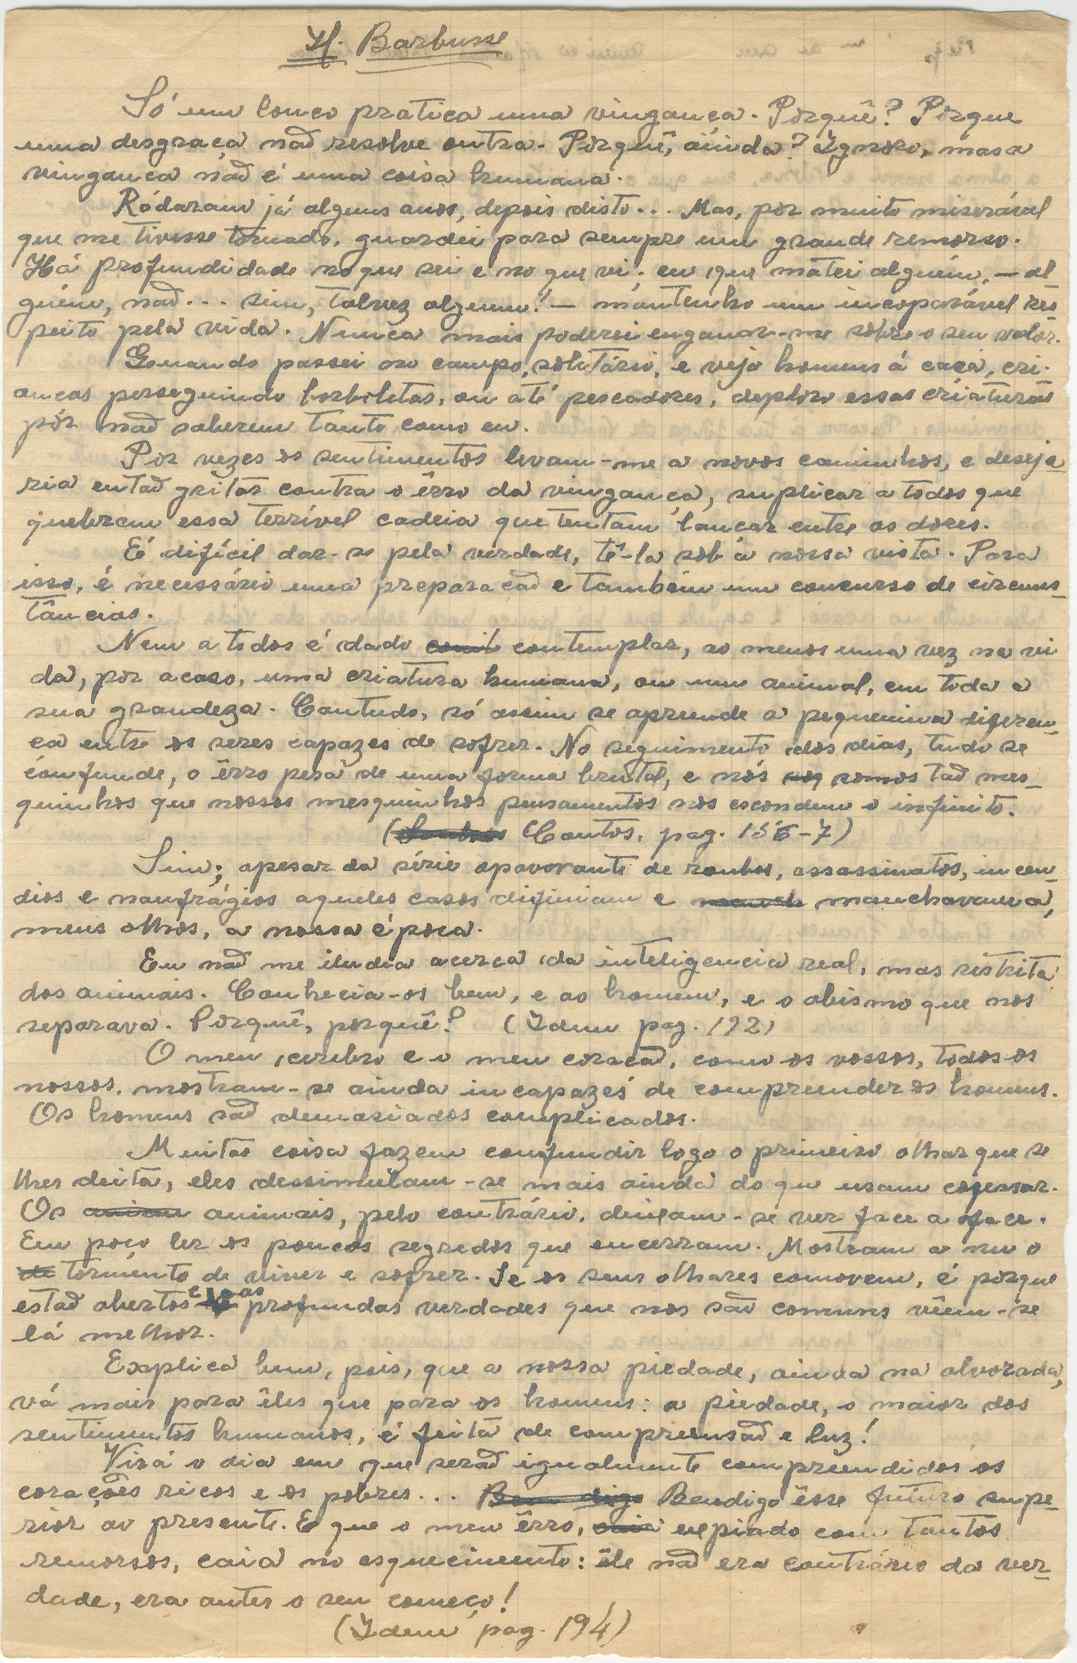 H. Barbusse
Só um louco pratica uma vingança. Porquê? Porque
uma desgraça não resolve outra. Porquê, ainda? Ignoro, mas a
vingança não é uma coisa humana.
Ródaram já alguns anos, depois disto... Mas, por muito miserável
que me tivesse tornado, guardei para sempre um grande remorso.
Há profundidade no que sei e no que vi. eu que matei alguém, — al
guém, não... sim, talvez alguem! — mantenho um incoparável res
peito pela vida. Nunca mais poderei enganar-me sobre o seu valor.
Quando passei no campo, solitário, e vejo homens á caça, cri-
anças perseguindo borboletas, ou até pescadores, deploro essas criaturas
pór não saberem tanto como eu.
Por vezes os sentimentos levam-me a novos caminhos, e deseja
ria então gritar contra o êrro da vingança, suplicar a todos que
quebrem essa terrível cadeia que tentam lançar entre as dores.
É difícil dar-se pela verdade, tê-la sob a nossa vista. Para
isso, é necessário uma preparação e tambéim um concurso de circuns-
tâncias.
Nem a todos é dado contemplar, ao menos uma vez na vi
da, por acaso, uma criatura humana, ou um animal, em toda a
sua grandeza. Contudo, só assim se apreende a pequenina diferen-
ça entre os seres capazes de sofrer. No seguimento dos dias, tudo se
confunde, o êrro pesa de uma forma brutal, e nós somos tão mes-
quinhos que nossos mesquinhos pensamentos nos escondem o infinito.
(Contos, pag. 156-7)
Sim; apesar da série apavorante de roubos, assassinatos, incen-
dios e naufrágios aqueles casos difiniam e manchavam a,
meus olhos, a nossa época.
Eu não me iludia acerca da inteligencia real, mas restrita
dos animais. Conhecia-os bem, e ao homem, e o abismo que nos
separava. Porquê, porquê? (Idem pag. 192)
O meu cerebro e o meu coração, como os vossos, todos os
nossos, mostram-se ainda incapazes de compreender os homens.
Os homens são demasiados complicados.
Muitas coisa fazem confundir logo o primeiro olhar que se
lhes deita, eles dessimulam-se mais ainda do que usam
Os animais, pelo contrário, deixam-se ver face a face.
Eu posso ler os poucos segredos que encerram. Mostram a nu o
tormento de viver e sofrer. Se os seus olhares comovem, é porque
estão abertos e as profundas verdades que nos são comuns vêem-se
lá melhor.
Explica bem, pois, que a nossa piedade, ainda na alvorada,
vá mais para êles que para os homens: a piedade, o maior dos
sentimentos humanos, é feita de compreensão e luz!
Virá o dia em que serão igualmente compreendidos os
corações ricos e os pobres... Bendigo êsse futuro supe-
rior ao presente. E que o meu êrro, expiado com tantos
remorsos, caia no esquecimento: êle não era contrário da ver-
dade, era antes o seu começo!
(Idem pag. 194)